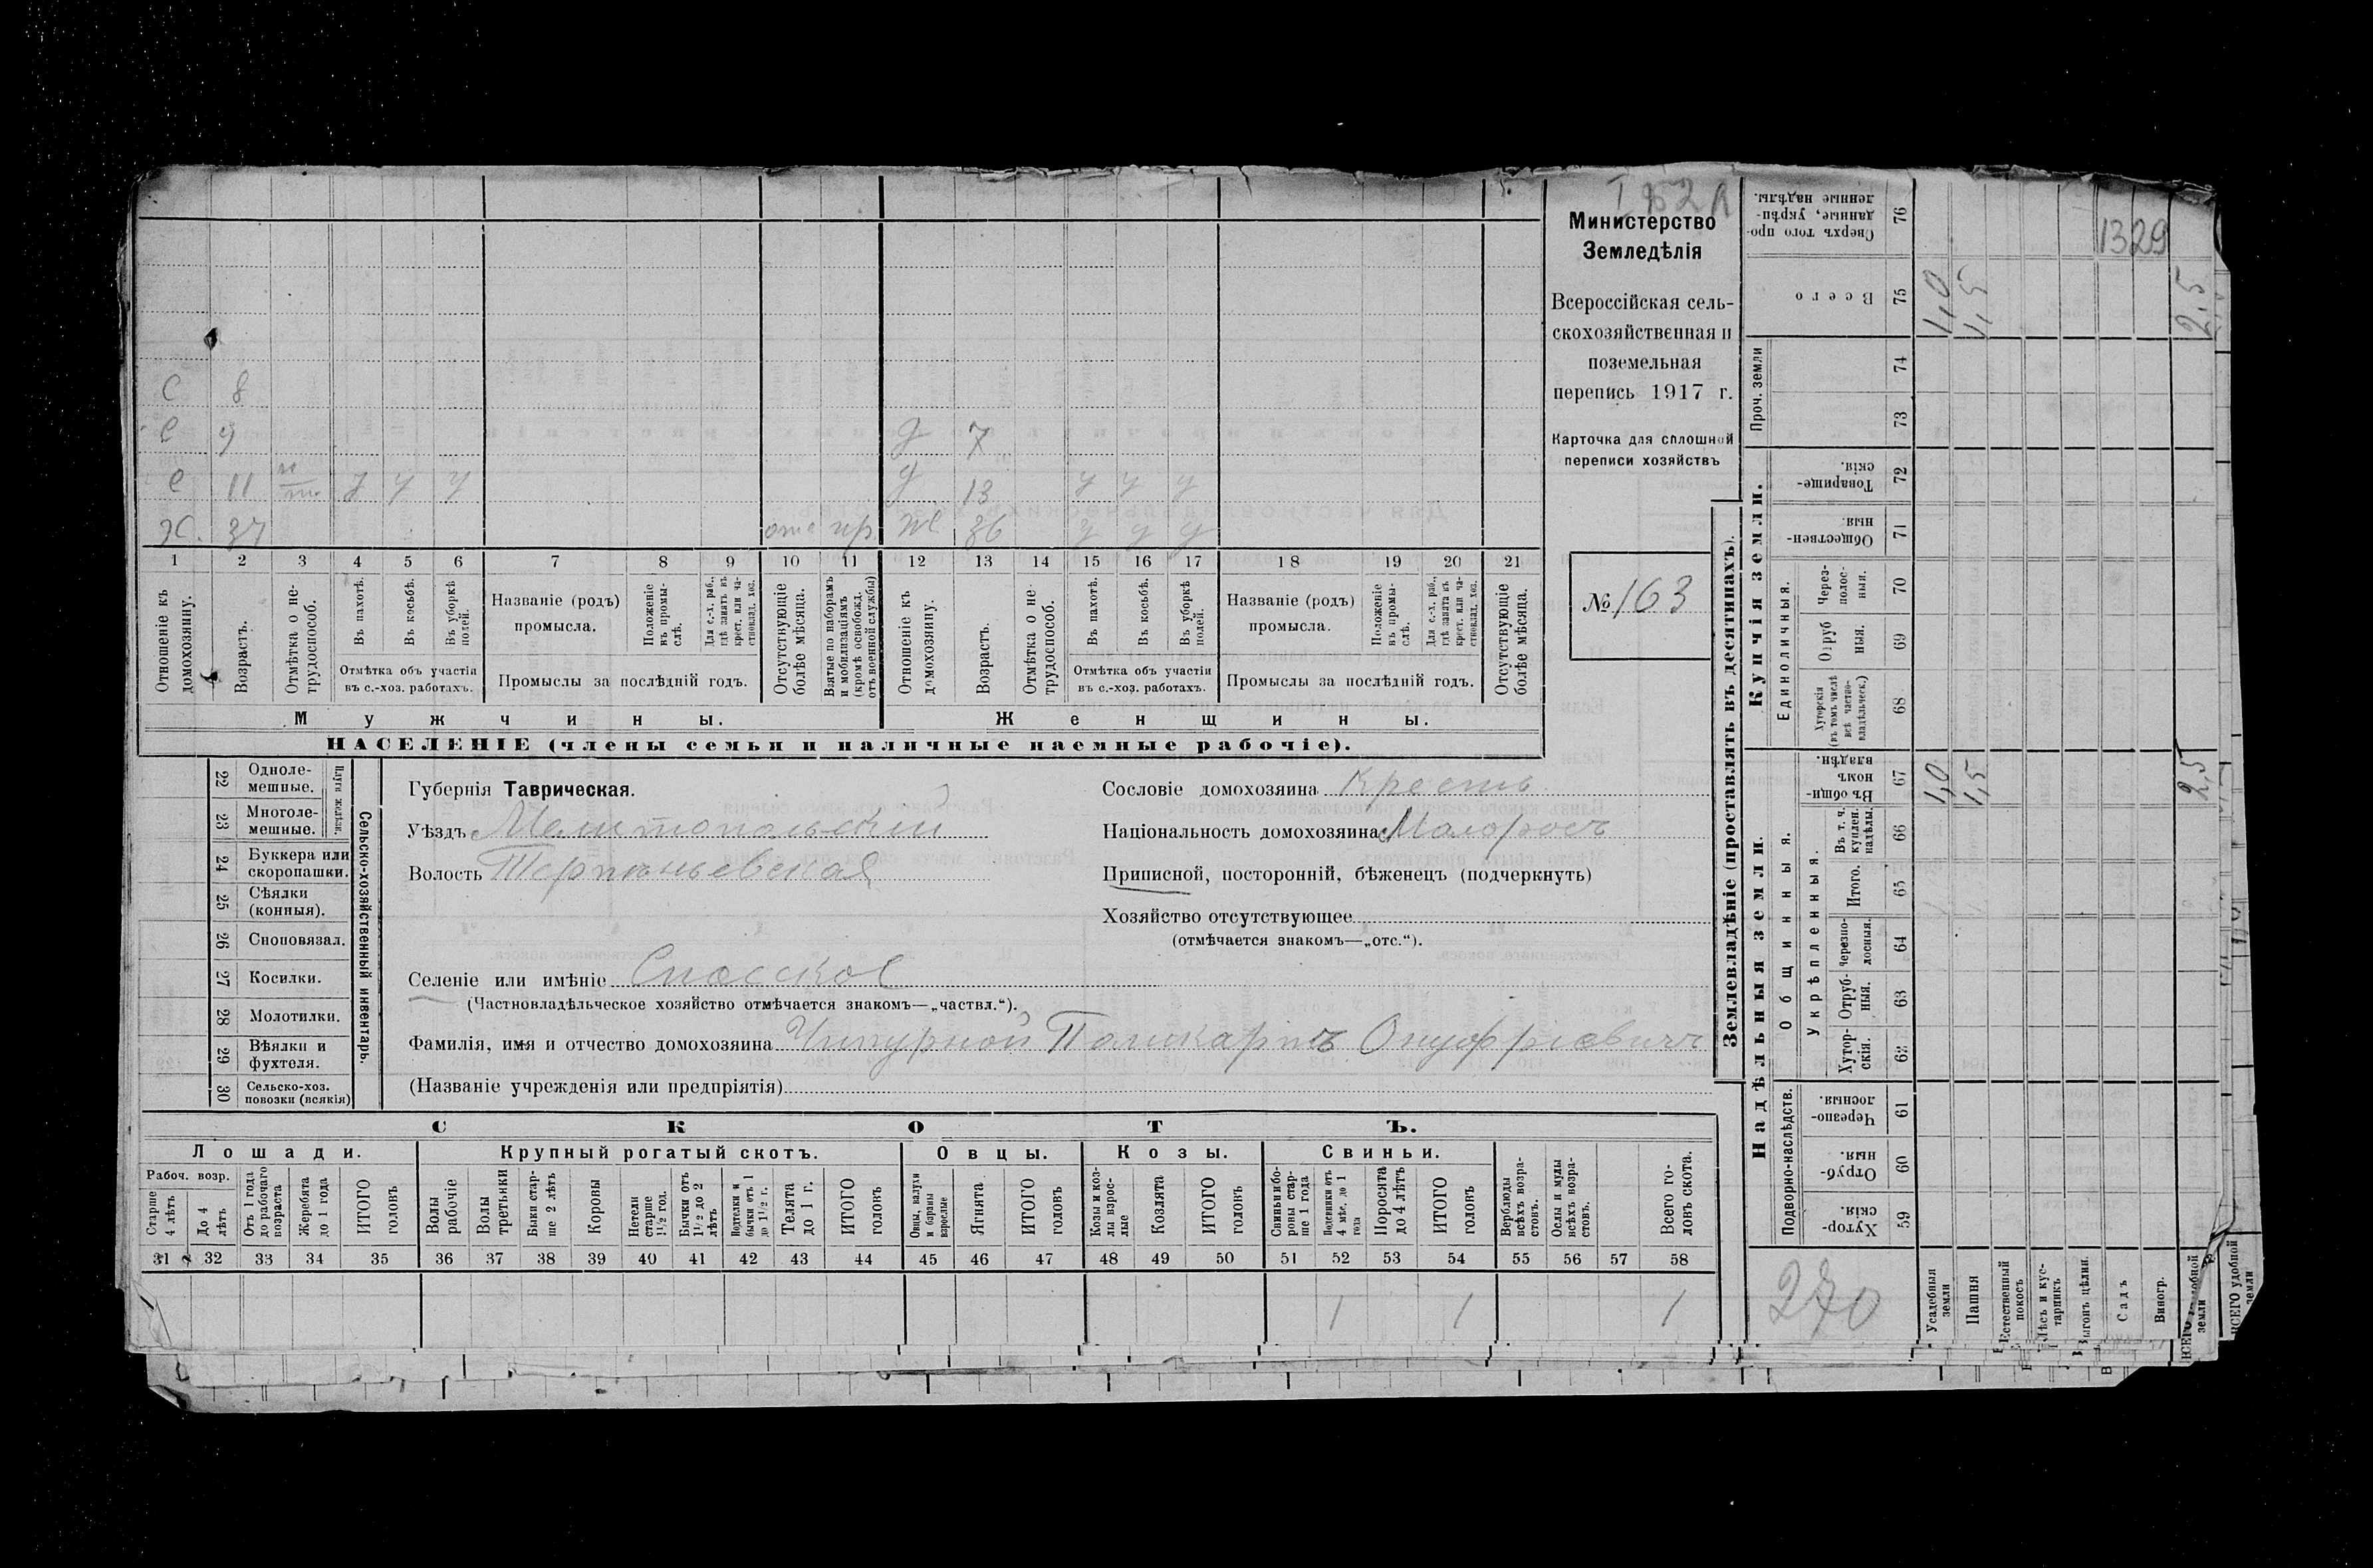 1329
Министерство
Земледѣлія
Всероссійская сель-
скохозяйственная и
поземельная
перепись 1917 г.
Карточка для сплошной
переписи хозяйствъ
№ 163
С 8
С 9 Д 7
С 11 У У У Д 13 У У У
Х. 37 отс пр. Ж 36 У У У
1 2 3 4 5 6 7 8 9 10 11 12 13 14 15 16 17 18 19 20 21
Отношеніе къ домохозяину.
Возрастъ.
Отмѣтка о не-трудоспособ.
Въ пахотѣ.
Въ косьбѣ.
Въ уборкѣ полей.
Отмѣтка объ участіи
въ с.-хоз. работахъ.
Названіе (родъ)
промысла.
Положеніе въ промы-слѣ.
Для с.-х. раб., гдѣ занятъ въ крест. или ча-стновлад. хоз.
Промыслы за послѣдній годъ.
Отсутствующіе болѣе мѣсяца.
Взятые по наборамъ и мобилизаціямъ (кромѣ освобожд. отъ военной службы)
Отношеніе къ домохозяину.
Возрастъ.
Отмѣтка о не-трудоспособ.
Въ пахотѣ.
Въ косьбѣ.
Въ уборкѣ полей.
Отмѣтка объ участіи
въ с.-хоз. работахъ.
Названіе (родъ)
промысла.
Положеніе въ промы-слѣ.
Для с.-х. раб., гдѣ занята въ крест. или ча-стновлад. хоз.
Промыслы за послѣдній годъ.
Отсутствующіе болѣе мѣсяца.
Мужчины. Женщины.
НАСЕЛЕНІЕ (члены семьи и наличные наемные рабочіе).
Сельско-хозяйственный инвентарь.
Плуги желѣзн.
22 Одноле-мешные.
23 Многоле-мешные.
24 Буккера или скоропашки.
25 Сѣялки (конныя).
26 Сноповязал.
27 Косилки.
28 Молотилки.
29 Вѣялки и фухтеля.
30 Сельско-хоз. повозки (всякія)
Губернія Таврическая.
Уѣздъ Мелитопольскій
Волость Терпѣньевская
Селеніе или имѣніе Спасское
(Частновладѣльческое хозяйство отмѣчается знакомъ—„частвл.“).
Фамилія, имя и отчество домохозяина Чипурной Поликарпъ Онуфріевичъ
(Названіе учрежденія или предпріятія)
Сословіе домохозяина Крестъ
Національность домохозяина Малороссъ
Приписной, посторонній, бѣженецъ (подчеркнуть)
Хозяйство отсутствующее
(отмѣчается знакомъ—„отс.“).
СКОТЪ.
Лошади. Крупный рогатый скотъ. Овцы. Козы. Свиньи.
Рабоч. возр.
Старше 4 лѣтъ
До 4 лѣтъ
Отъ 1 года до рабочаго возраста
Жеребята до 1 года
ИТОГО головъ
Волы рабочіе
Волы третьяки
Быки стар-ше 2 лѣтъ
Коровы
Нетели старше 1 1/2 год.
Бычки отъ 1 1/2 до 2 лѣтъ
Подтелки и бычки отъ 1 до 1 1/2 г.
Телята до 1 г.
ИТОГО головъ
Овцы, валухи и бараны взрослые
Ягнята
ИТОГО головъ
Козы и коз-лы взрос-лые
Козлята
ИТОГО головъ
Свиньи и бо-ровы стар-ше 1 года
Подсвинки отъ 4 мѣс. до 1 года
Поросята до 4 лѣтъ
ИТОГО головъ
Верблюды всѣхъ возра-стовъ.
Ослы и мулы всѣхъ возра-стовъ.
Всего го-ловъ скота.
31 32 33 34 35 36 37 38 39 40 41 42 43 44 45 46 47 48 49 50 51 52 53 54 55 56 57 58
1 1 1
Землевладѣніе (проставлять въ десятинахъ).
Надѣльныя земли.
Купчія земли.
Проч. земли
Подворно-наслѣдств.
Общинныя.
Укрѣпленныя.
Единоличныя.
Хутор-скія. 59
Отруб-ныя. 60
Черезпо-лосныя. 61
Хутор-скія. 62
Отруб-ныя. 63
Черезпо-лосныя. 64
Итого. 65
Въ т. ч. куплен. надѣлы. 66
Въ общи-номъ владѣн. 67
Хуторскія (въ томъ числѣ всѣ частно-владѣльческ.) 68
Отруб ныя. 69
Через-полос-ныя. 70
Обществен-ныя. 71
Товарище-скія. 72
73
74
Всего 75
Сверхъ того про-данные, укрѣп-ленные надѣлы. 76
270
Усадебныя земли 1,0 1,0
Пашня 1,5 1,5
Естественный покосъ
Лѣсъ и кус-тарникъ
Выгонъ цѣлин.
Садъ
Виногр.
2,5 2,5
ВСЕГО удобной земли